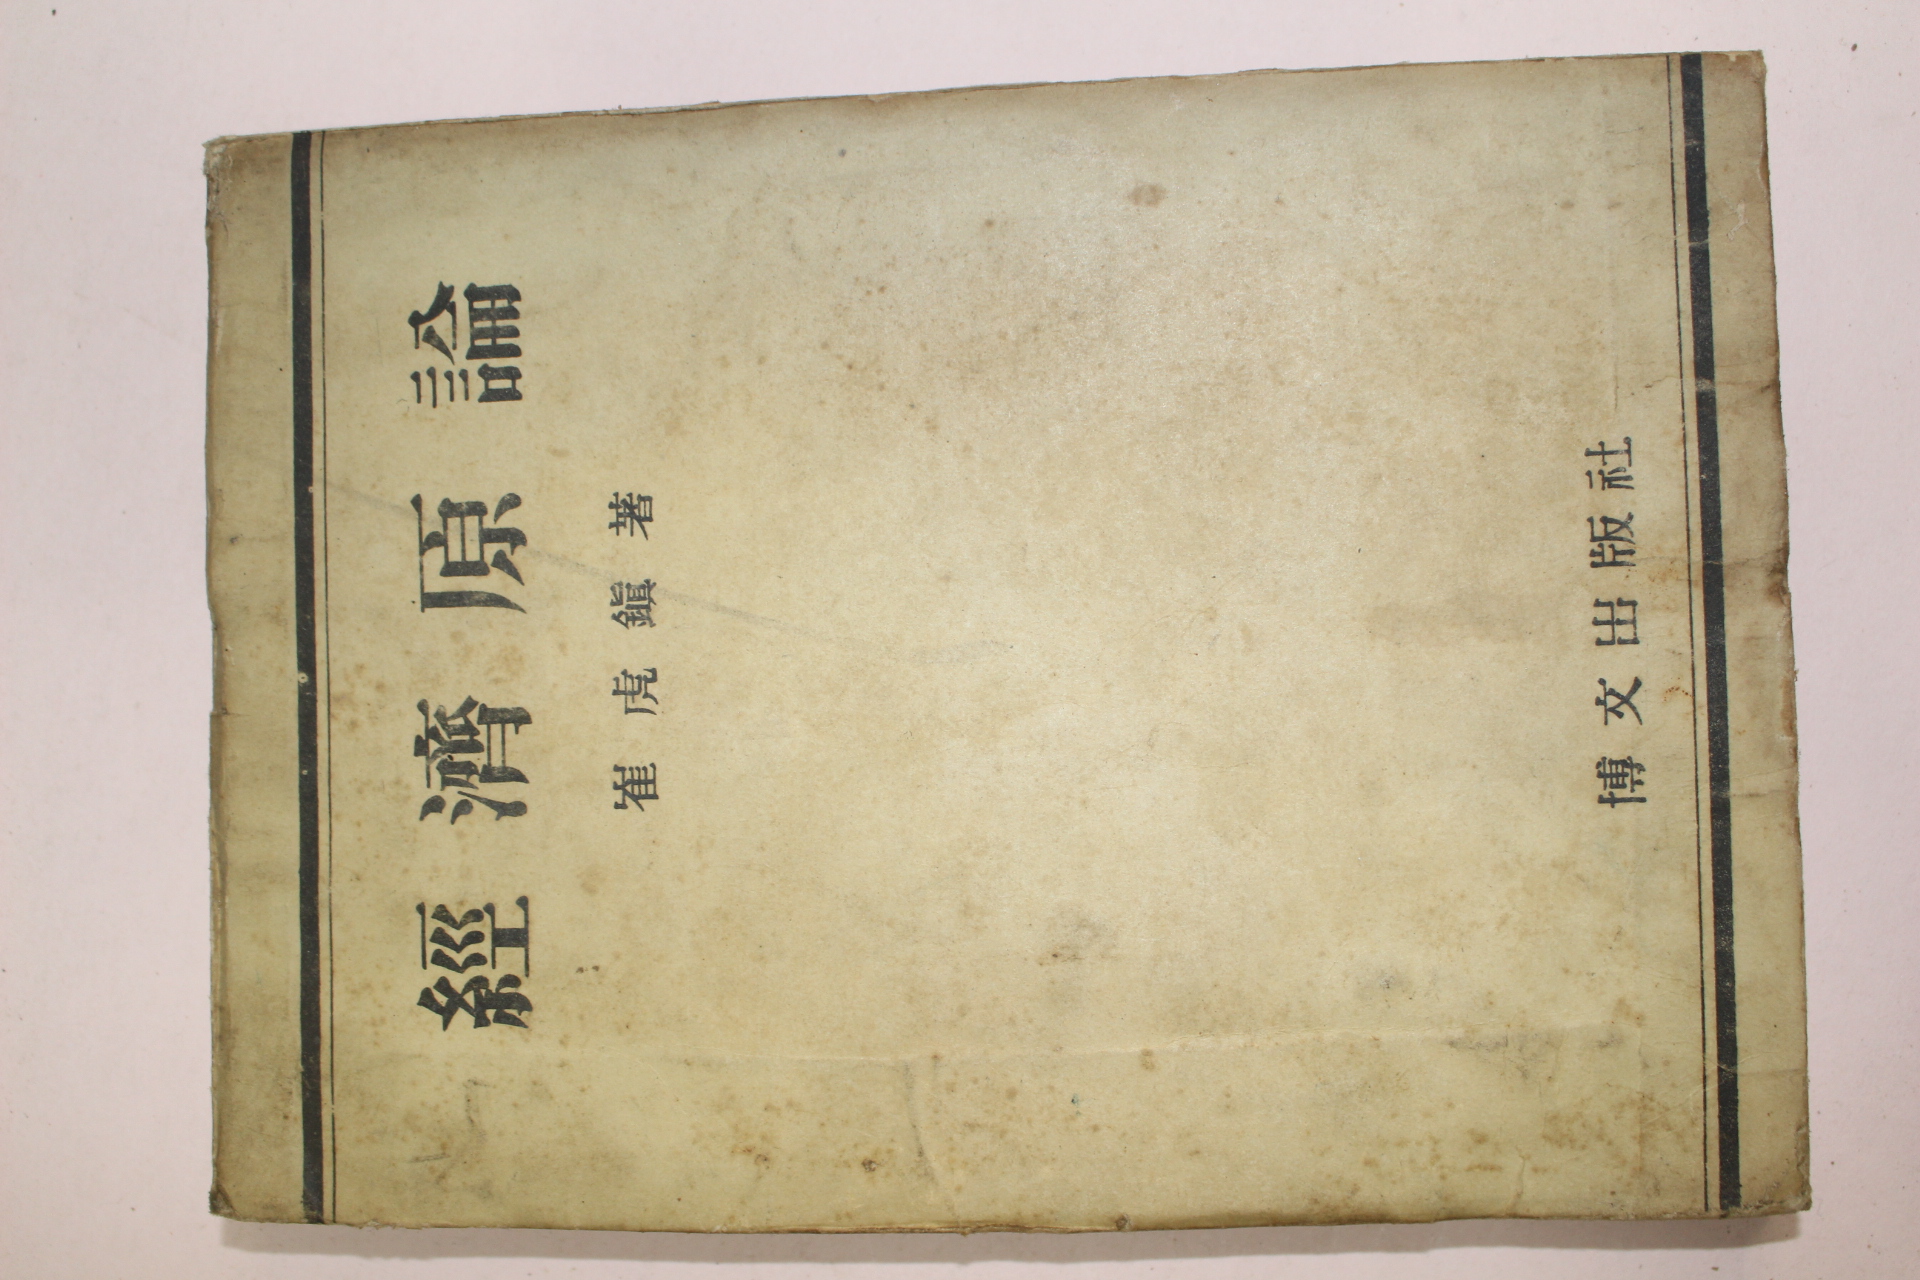 經濟原論
崔虎鎭 著
博文出版社